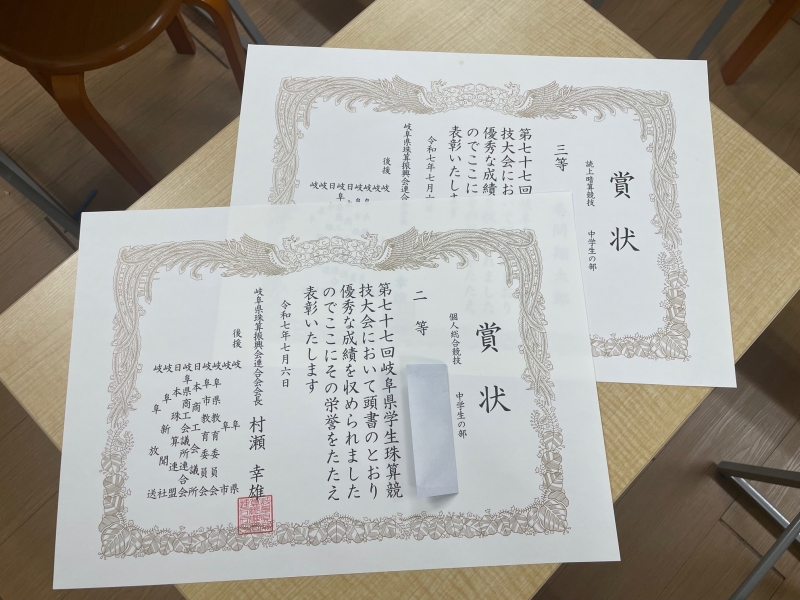 賞状
読上暗算競技 中学生の部
三等
第七十七回
技大会にお
優秀な成績
のでここに
表彰いたしま
令和七年七月
岐阜県珠算振興会連合
後援
賞状
個人総合競技 中学生の部
二等
第七十七回岐阜県学生珠算競
技大会において頭書のとおり
優秀な成績を収められました
のでここにその栄誉をたたえ
表彰いたします
令和七年七月六日
岐阜県珠算振興会連合会会長 村瀬 幸雄
後援
岐阜県
岐阜市
岐阜県教育委員会
岐阜市教育委員会
日本商工会議所
岐阜県商工会議所連合会
日本珠算連盟
岐阜新聞社
岐阜放送